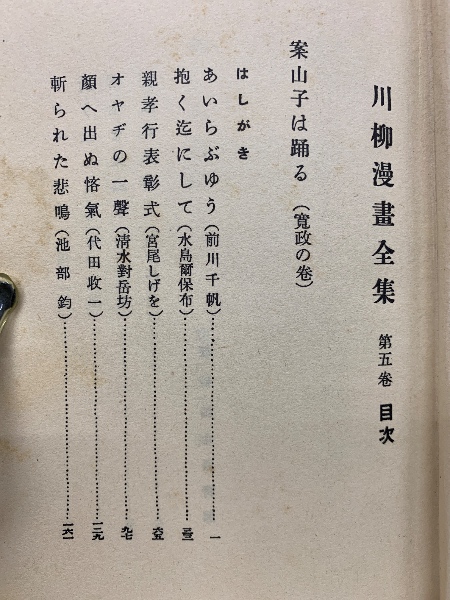 川柳漫畫全集 第五卷 目次
案山子は踊る（寬政の卷）
はしがき
あいらぶゆう（前川千帆）……一
抱く迄にして（水島爾保布）……三三
親孝行表彰式（宮尾しげを）……六五
オヤヂの一聲（淸水對岳坊）……九七
顏へ出ぬ悋氣（代田收一）……一二九
斬られた悲鳴（池部鈞）……一六一